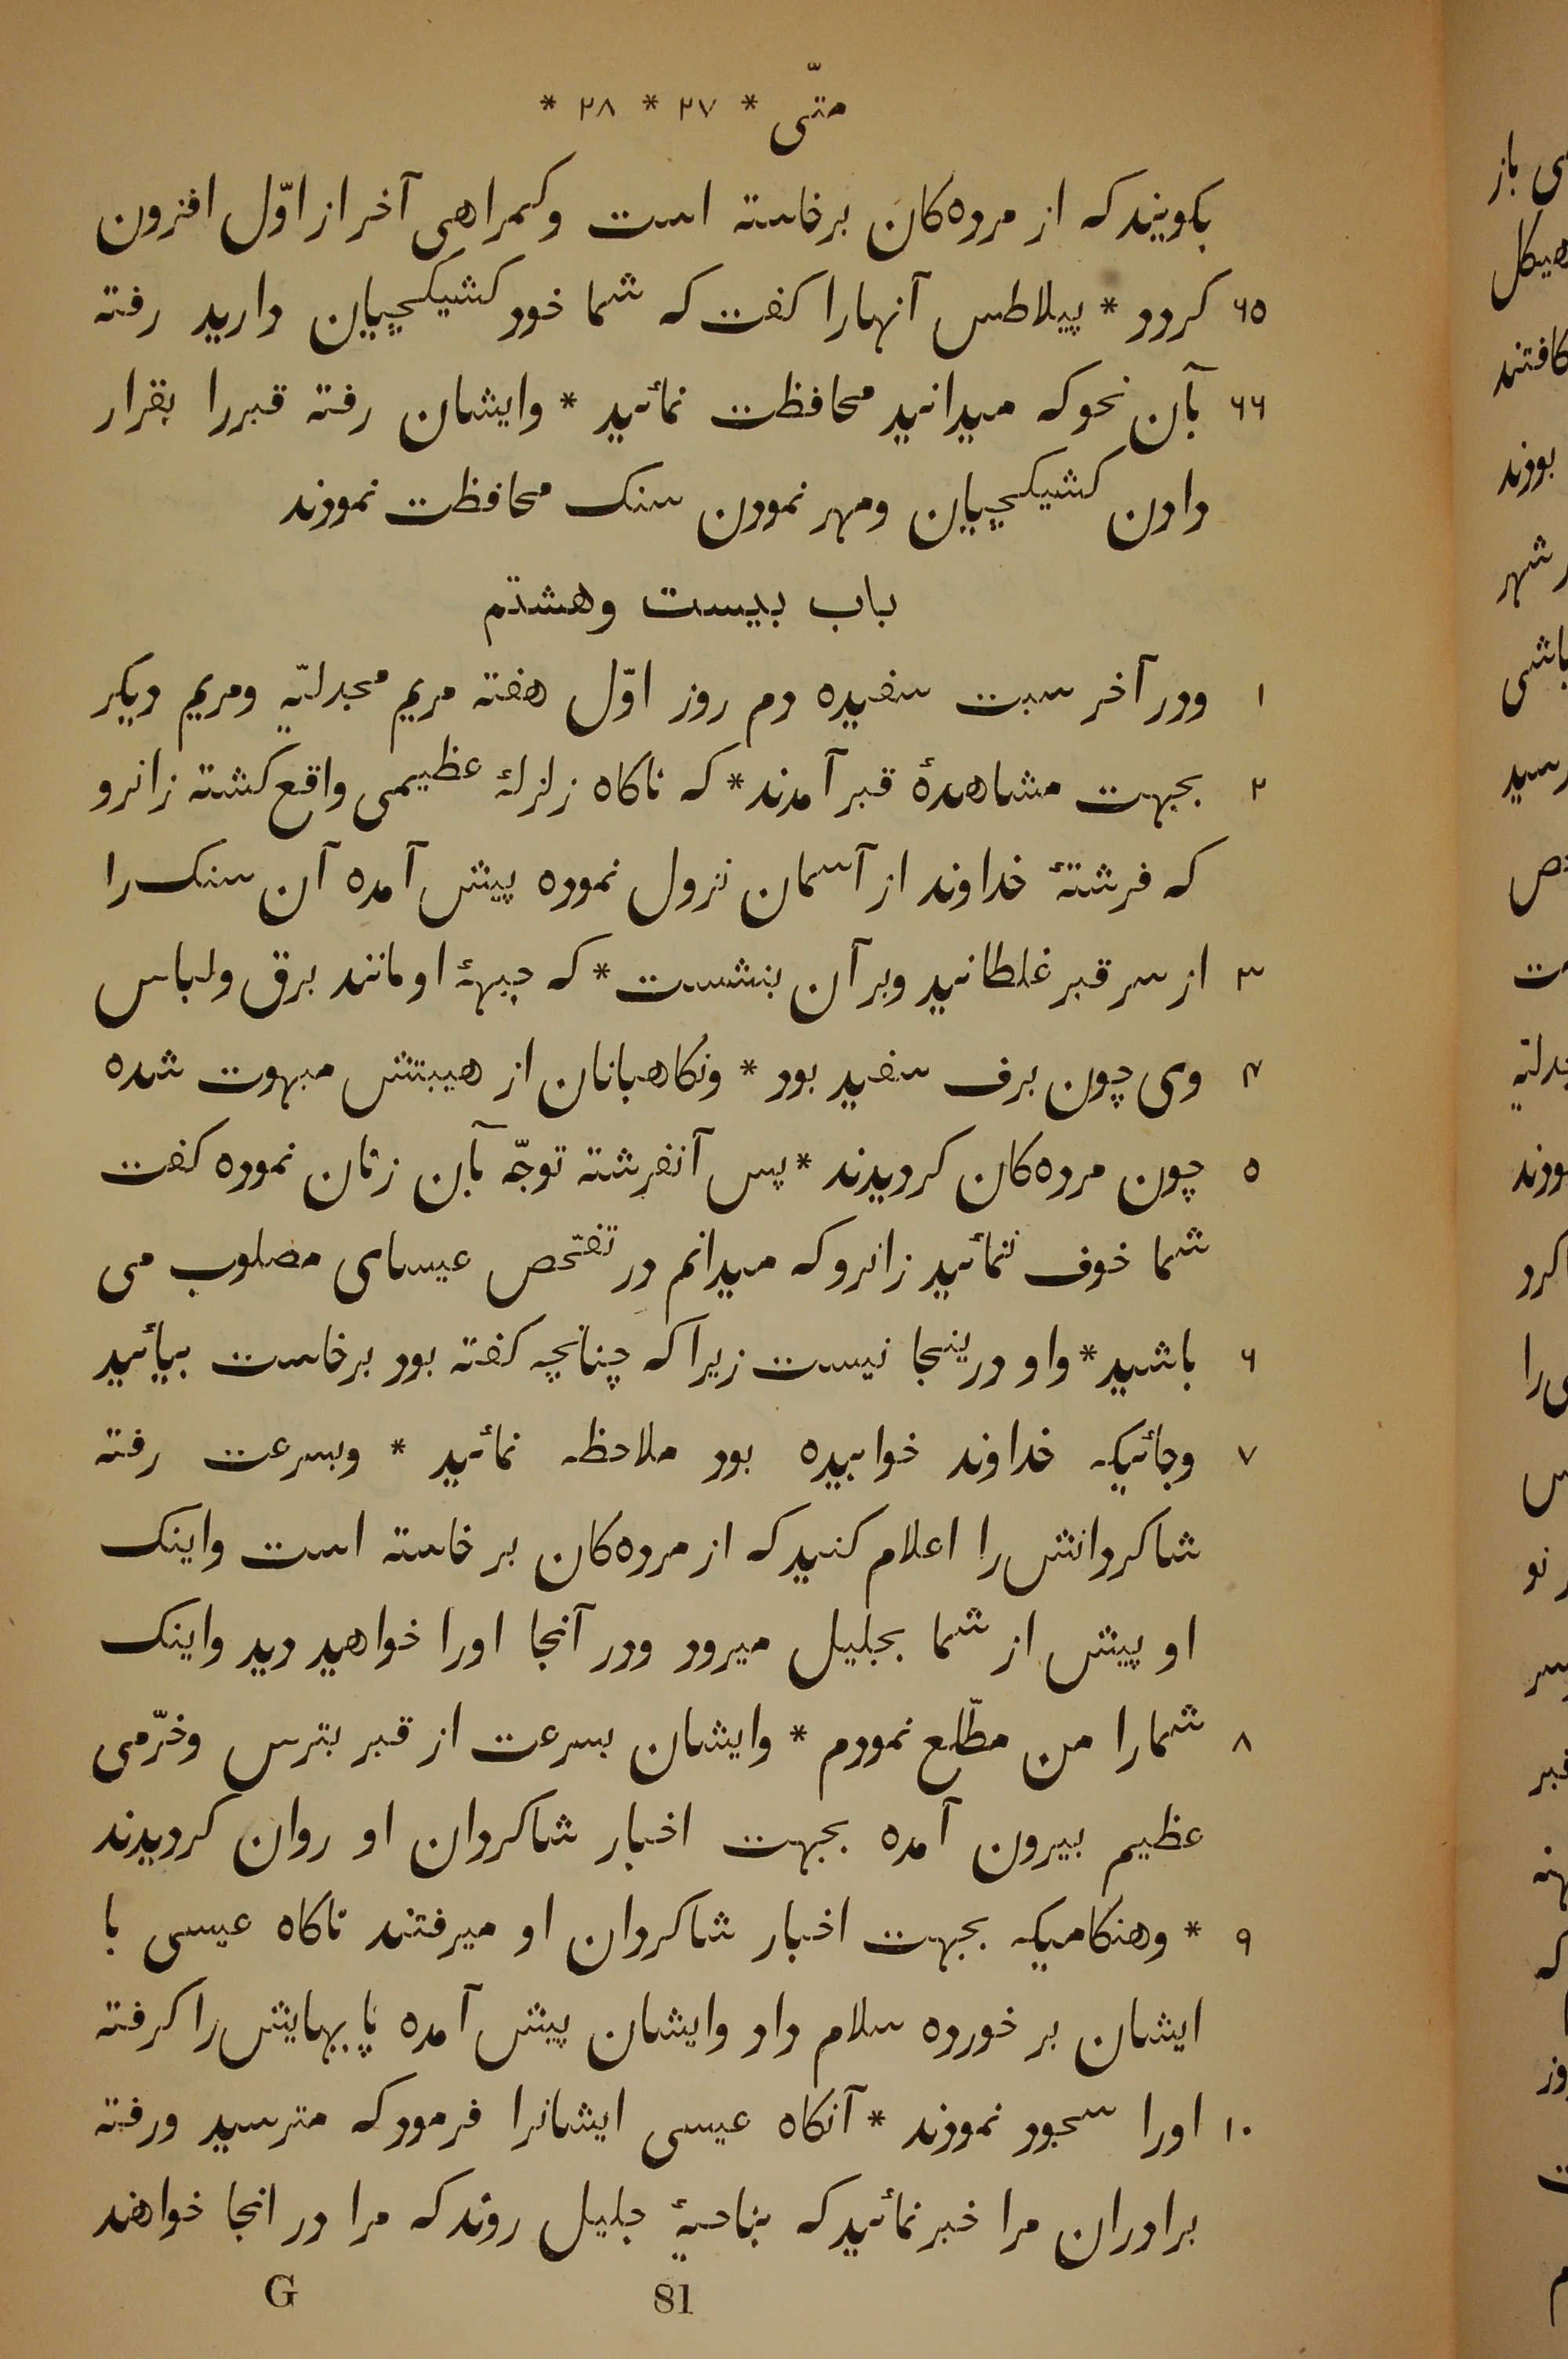 متّی * ۲۷ * ۲۸ *
بکویند که از مرده‌کان برخاسته است وکمراهی آخر از اوّل افزون
۶۵ کردد * پیلاطس آنهارا کفت که شما خود کشیکچیان دارید رفته
۶۶ بآن نحو که میدانید محافظت نمائید * وایشان رفته قبررا بقرار
دادن کشیکچیان ومهر نمودن سنک محافظت نمودند
باب بیست وهشتم
۱ ودر آخر سبت سفیده دم روز اوّل هفته مریم مجدلیّه ومریم دیکر
۲ بجهت مشاهدهٔ قبر آمدند * که ناکاه زلزلهٔ عظیمی واقع کشته زانرو
که فرشتهٔ خداوند از آسمان نزول نموده پیش آمده آن سنک را
۳ از سر قبر غلطانید وبر آن بنشست * که جبههٔ او مانند برق ولباس
۴ وی چون برف سفید بود * ونکاهبانان از هیبتش مبهوت شده
۵ چون مرده‌کان کردیدند * پس آنفرشته توجّه بآن زنان نموده کفت
شما خوف ننمائید زانرو که میدانم در تفحّص عیسای مصلوب می
۶ باشید * واو درینجا نیست زیرا که چنانچه کفته بود برخاست بیائید
۷ وجائیکه خداوند خوابیده بود ملاحظه نمائید * وبسرعت رفته
شاکردانش را اعلام کنید که از مرده‌کان بر خاسته است واینک
او پیش از شما بجلیل میرود ودر آنجا اورا خواهید دید واینک
۸ شمارا من مطّلع نمودم * وایشان بسرعت از قبر بترس وخرّمی
عظیم بیرون آمده بجهت اخبار شاکردان او روان کردیدند
۹ * وهنکامیکه بجهت اخبار شاکردان او میرفتند ناکاه عیسی با
ایشان بر خورده سلام داد وایشان پیش آمده پایهایش را کرفته
۱۰ اورا سجود نمودند * آنکاه عیسی ایشانرا فرمود که مترسید ورفته
برادران مرا خبر نمائید که بناحیهٔ جلیل روند که مرا در انجا خواهند
G 81